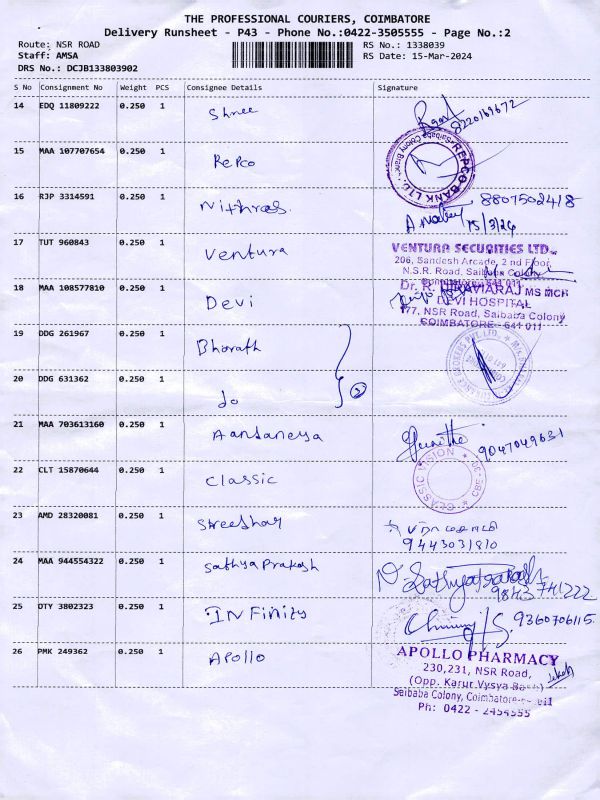 THE PROFESSIONAL COURIERS, COIMBATORE
Delivery Runsheet - P43 - Phone No.:0422-3505555 - Page No.:2
Route: NSR ROAD
RS No.: 1338039
Staff: AMSA
RS Date: 15-Mar-2024
DRS No.: DCJB133803902
S No Consignment No Weight PCS Consignee Details Signature
14 EDQ 11809222 0.250 1 Shree
8220169672
15 MAA 107707654 0.250 1 Repco
REPCO BANK LTD.
Saibaba Colony Branch
16 RJP 3314591 0.250 1 Nithras. 8807502418
15/3/24
17 TUT 960843 0.250 1 Ventura
VENTURA SECURITIES LTD.,
206, Sandesh Arcade, 2 nd Floor,
N.S.R. Road, Saibaba Colony
18 MAA 108577810 0.250 1 Devi
MS MCH
DEVI HOSPITAL
177, NSR Road, Saibaba Colony
COIMBATORE - 641 011
19 DDG 261967 0.250 1 Bharath
20 DDG 631362 0.250 1 do
2
21 MAA 703613160 0.250 1 Aanjaneya
9047049631
22 CLT 15870644 0.250 1 Classic
CLASSIC VISION
23 AMD 28320081 0.250 1 Shreeshay
9443031810
24 MAA 944554322 0.250 1 Sathya Prakash
9843741222
25 OTY 3802323 0.250 1 INFinity
9360706115.
26 PMK 249362 0.250 1 Apollo
APOLLO PHARMACY
230,231, NSR Road,
(Opp. Karur Vysya Bank)
Saibaba Colony, Coimbatore
Ph: 0422 - 2454555